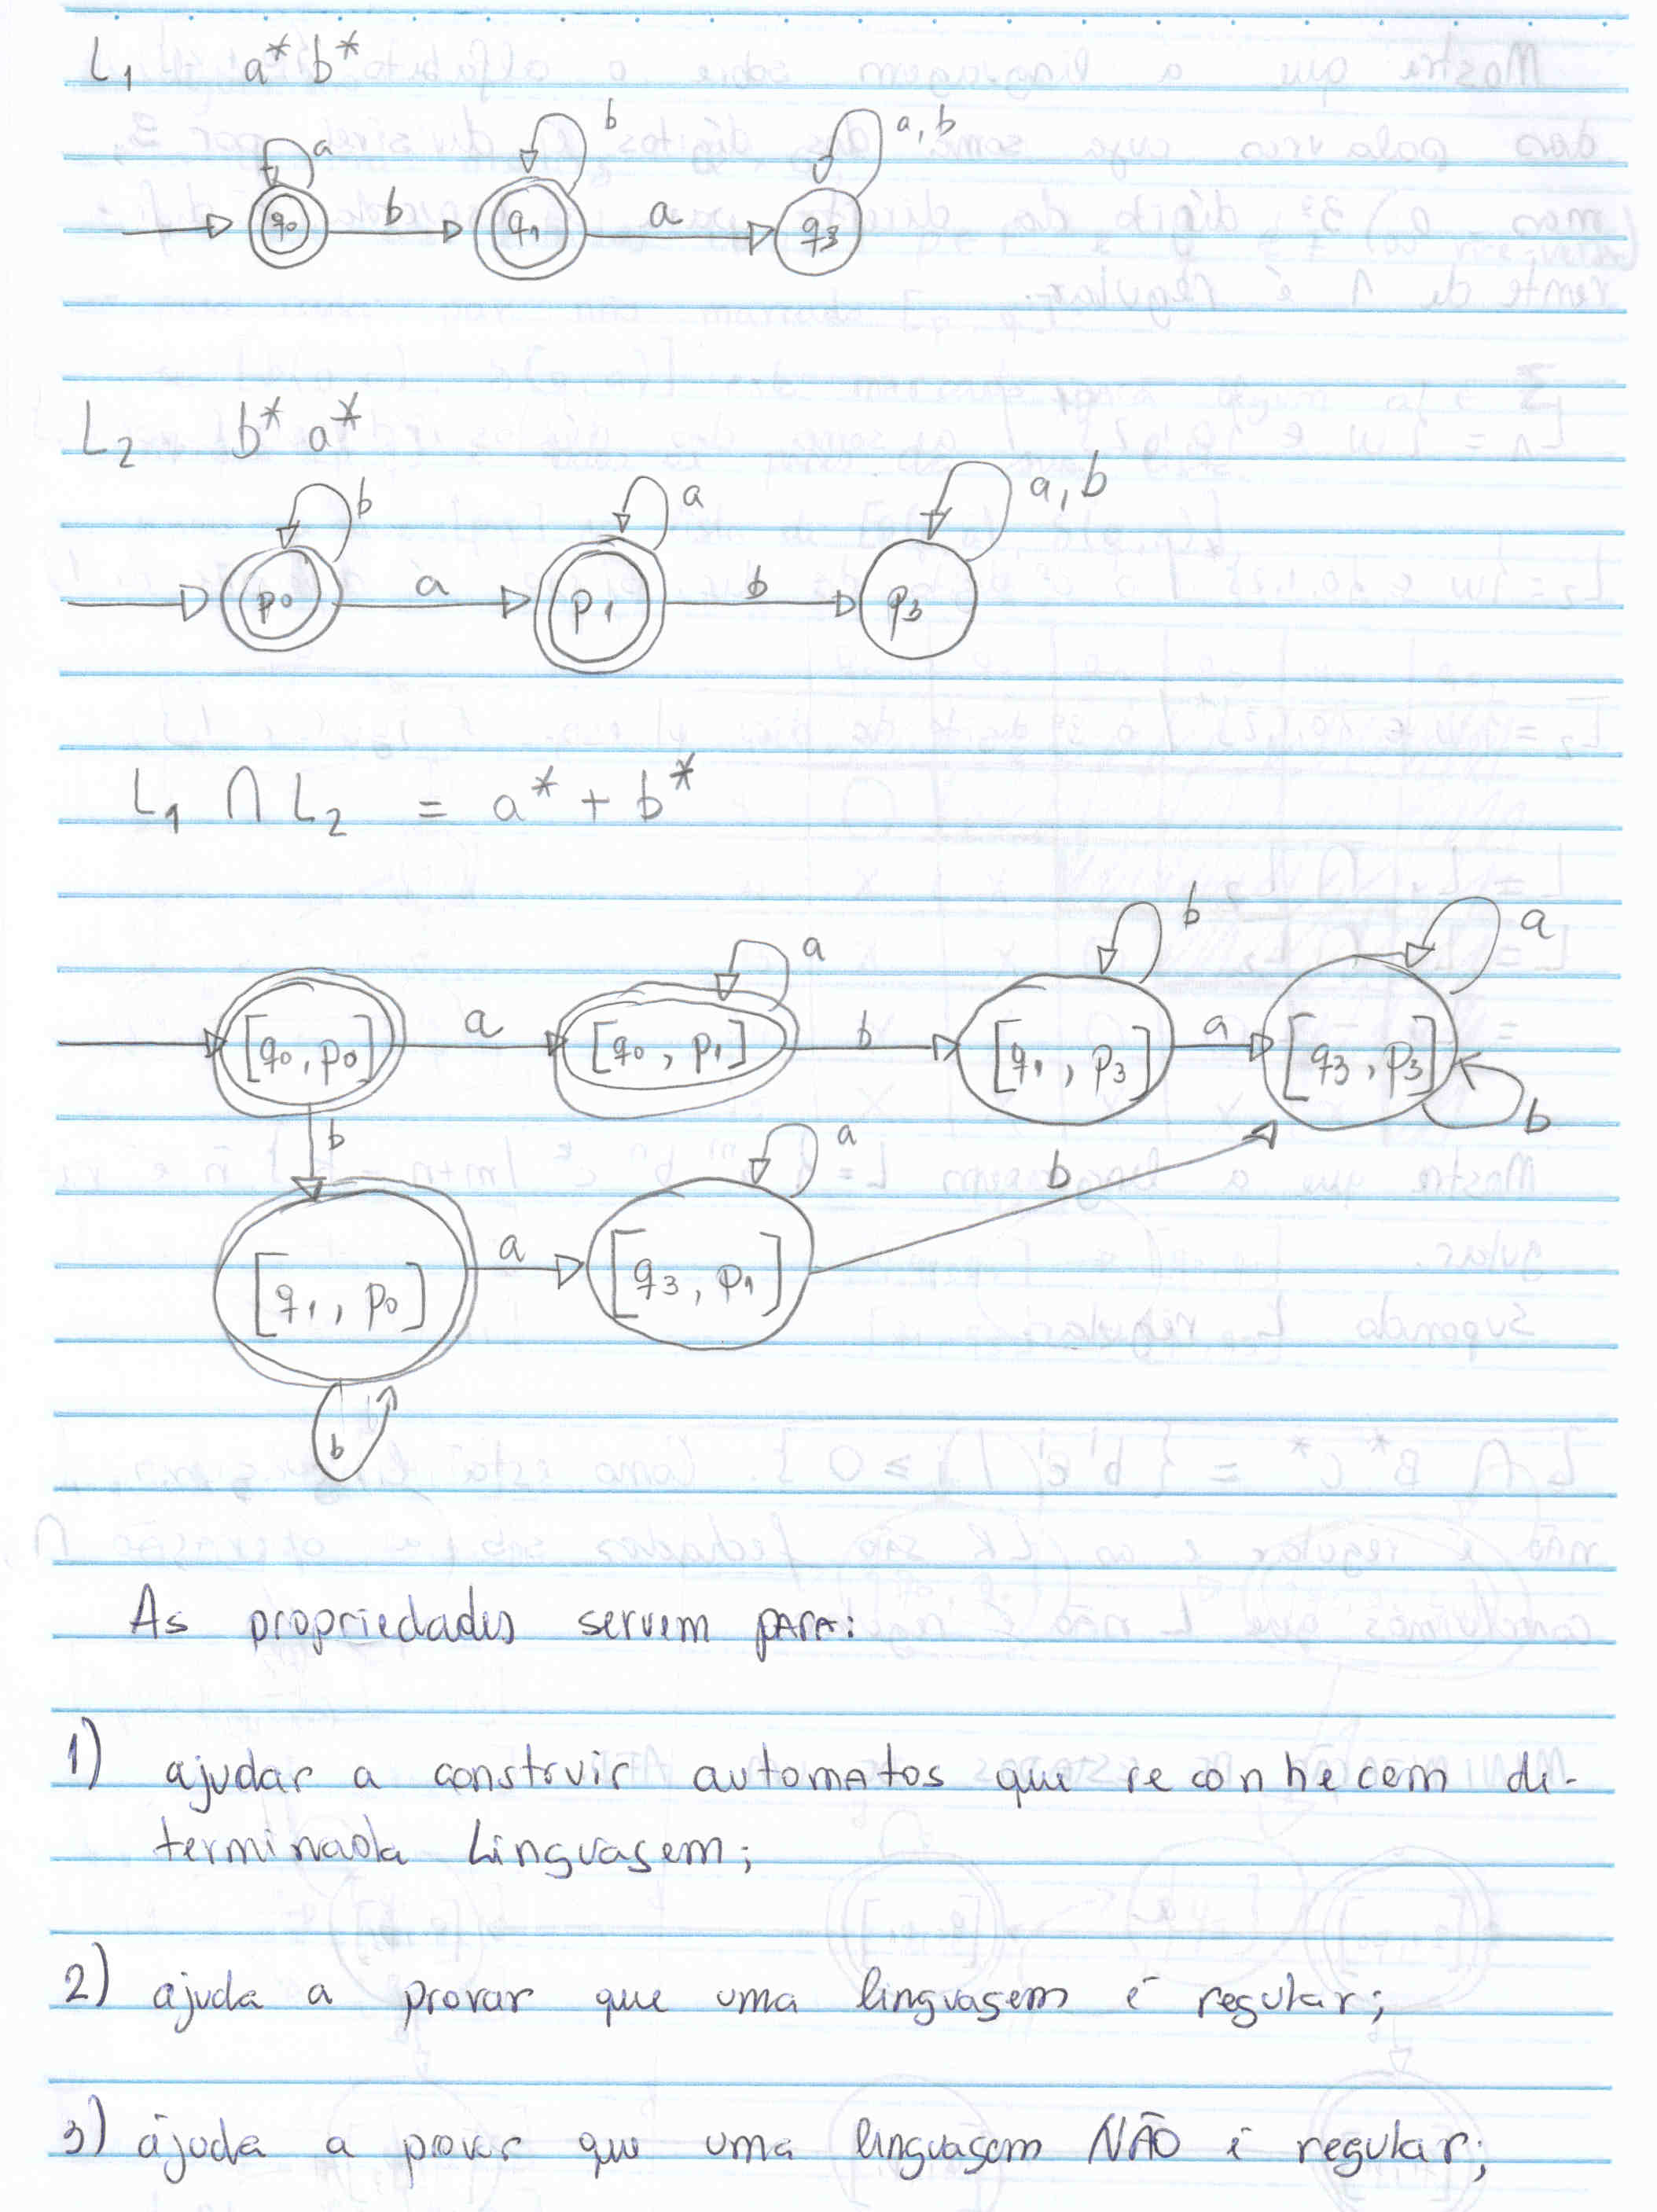 L₁ a* b*
a b a,b
q0 b q1 a q3
L₂ b* a*
b a a,b
p0 a p1 b p3
L₁ ∩ L₂ = a* + b*
a b a
[q0, p0] a [q0, p1] b [q1, p3] a [q3, p3] b
b a b
[q1, p0] a [q3, p1]
b
As propriedades servem para:
1) ajudar a construir automatos que reconhecem de-
terminada Linguagem;
2) ajuda a provar que uma linguagem é regular;
3) ajuda a provar que uma linguagem NÃO é regular;